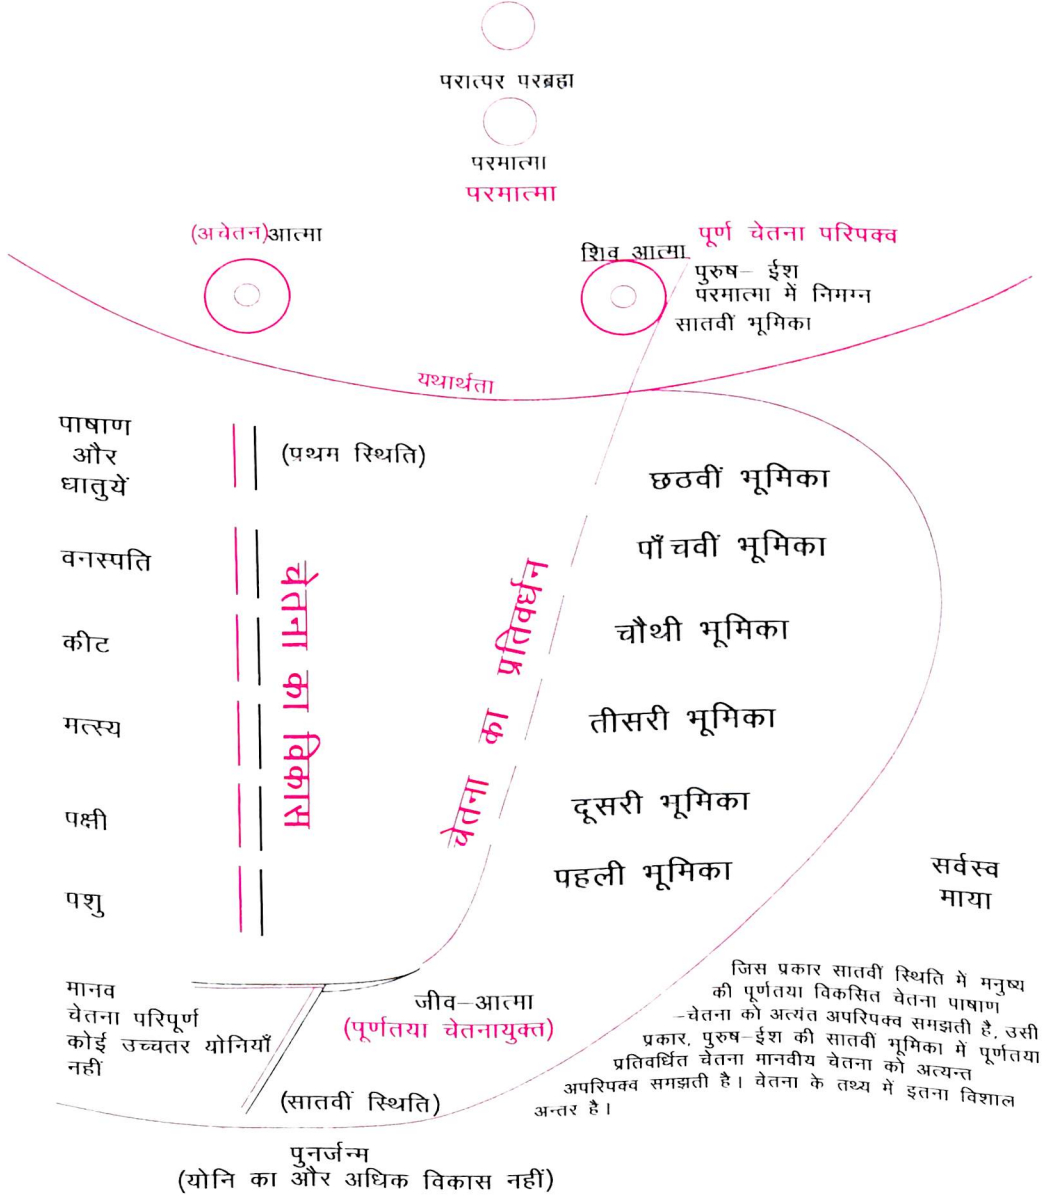 परात्पर परब्रह्म
परमात्मा
परमात्मा
(अचेतन)आत्मा
शिव आत्मा
पूर्ण चेतना परिपक्व
पुरुष- ईश
परमात्मा में निमग्न
सातवीं भूमिका
यथार्थता
पाषाण
और
धातुयें
(प्रथम स्थिति)
वनस्पति
कीट
मत्स्य
पक्षी
पशु
चेतना का विकास
चेतना का प्रतिवर्धन
छठवीं भूमिका
पाँचवीं भूमिका
चौथी भूमिका
तीसरी भूमिका
दूसरी भूमिका
पहली भूमिका
सर्वस्व
माया
मानव
चेतना परिपूर्ण
कोई उच्चतर योनियाँ
नहीं
जीव-आत्मा
(पूर्णतया चेतनायुक्त)
(सातवीं स्थिति)
जिस प्रकार सातवीं स्थिति में मनुष्य
की पूर्णतया विकसित चेतना पाषाण
-चेतना को अत्यंत अपरिपक्व समझती है, उसी
प्रकार, पुरुष-ईश की सातवीं भूमिका में पूर्णतया
प्रतिवर्धित चेतना मानवीय चेतना को अत्यन्त
अपरिपक्व समझती है। चेतना के तथ्य में इतना विशाल
अन्तर है।
पुनर्जन्म
(योनि का और अधिक विकास नहीं)